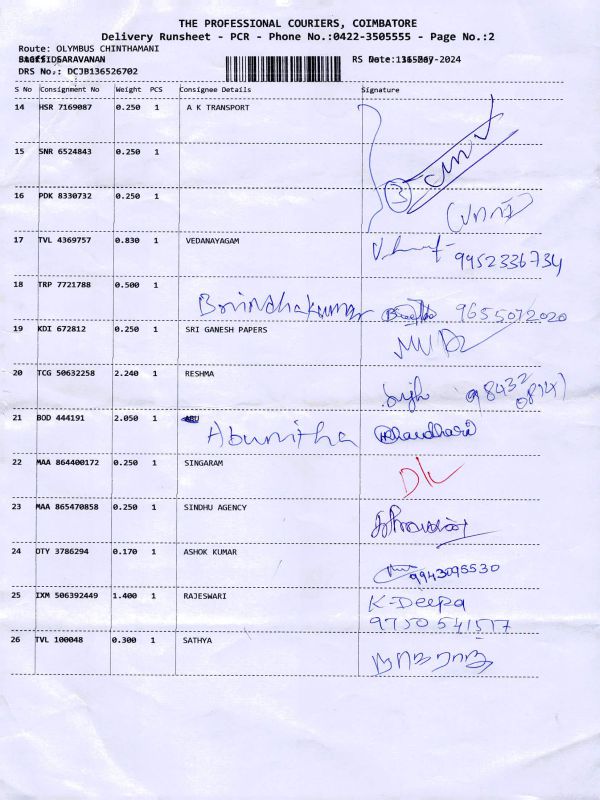 THE PROFESSIONAL COURIERS, COIMBATORE
Delivery Runsheet - PCR - Phone No.:0422-3505555 - Page No.:2
Route: OLYMBUS CHINTHAMANI
SARAVANAN
RS Date: -2024
DRS No.: DCJB136526702
S No Consignment No Weight PCS Consignee Details Signature
14 HSR 7169087 0.250 1 A K TRANSPORT
15 SNR 6524843 0.250 1 3
16 PDK 8330732 0.250 1
17 TVL 4369757 0.830 1 VEDANAYAGAM 9952336734
18 TRP 7721788 0.500 1 9655072020
19 KDI 672812 0.250 1 SRI GANESH PAPERS
20 TCG 50632258 2.240 1 RESHMA
21 BOD 444191 2.050 1 ABU Abunitha Chaudhari
22 MAA 864400172 0.250 1 SINGARAM
23 MAA 865470858 0.250 1 SINDHU AGENCY
24 OTY 3786294 0.170 1 ASHOK KUMAR 9943095530
25 IXM 506392449 1.400 1 RAJESWARI K-Deepa
9750541517
26 TVL 100048 0.300 1 SATHYA